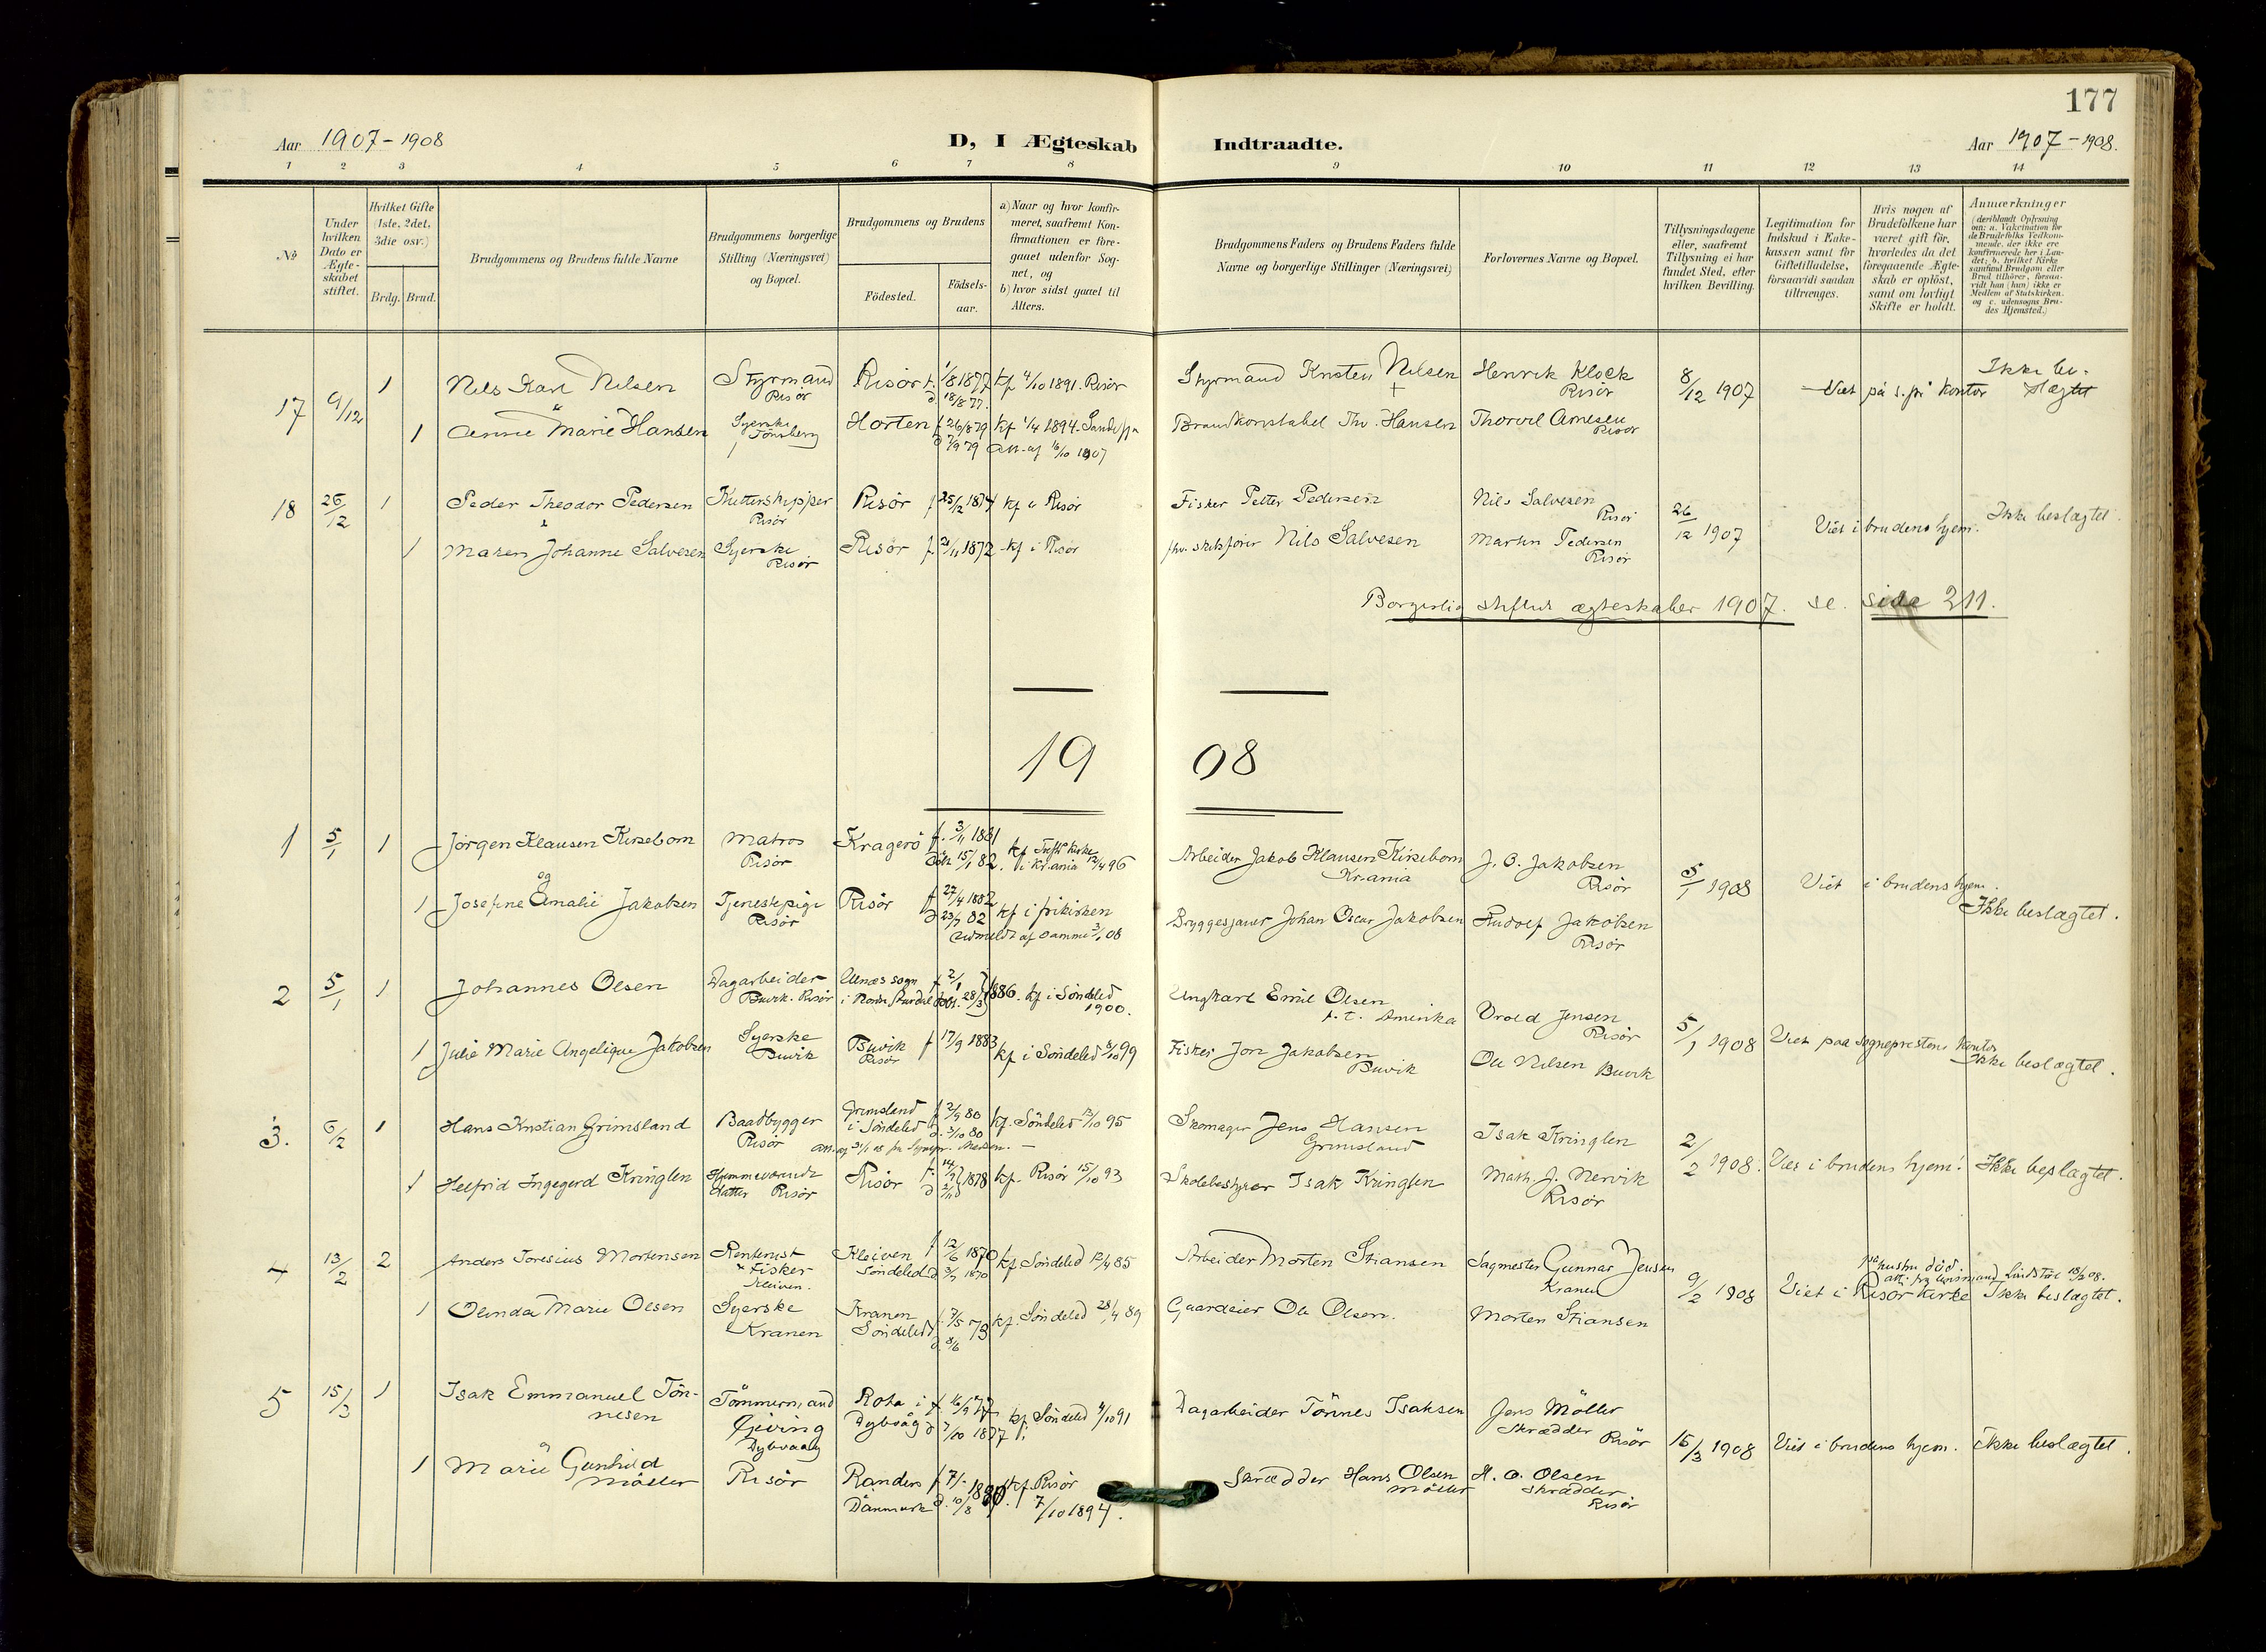 177
Aar 1907-1908
D, I Ægteskab Indtraadte.
Aar 1907-1908.
1 2 3 4 5 6 7 8 9 10 11 12 13 14
№
Under hvilken Dato er Ægteskabet stiftet.
Hvilket Gifte (1ste, 2det, 3die osv.)
Brdg. Brud.
Brudgommens og Brudens fulde Navne
Brudgommens borgerlige Stilling (Næringsvei) og Bopæl.
Brudgommens og Brudens
Födested.
Födsels-aar.
a) Naar og hvor konfir-
meret, saafremt Kon-
firmationen er fore-
gaaet udenfor Sog-
net, og
b) hvor sidst gaaet til
Alters.
Brudgommens Faders og Brudens Faders fulde
Navne og borgerlige Stillinger (Næringsvei)
Forlovernes Navne og Bopæl.
Tillysningsdagene
eller, saafremt
Tillysning ei har
fundet Sted, efter
hvilken Bevilling.
Legitimation for
Indskud i Enke-
kassen samt for
Giftetilladelse,
forsaavidt saadan
tiltrænges.
Hvis nogen af
Brudefolkene har
været gift för,
hvorledes da det
foregaaende Ægte-
skab er oplöst,
samt om lovligt
Skifte er holdt.
Anmærkninger
(deriblandt Oplysning
om: a. Vakcination for
de Brudefolks Vedkom-
mende, der ikke ere
konfirmerede her i Lan-
det; b. hvilket Kirke
samfund Brudgom eller
Brud tilhörer, forsaa-
vidt han (hun) ikke er
Medlem af Statskirken.
og c. udensogns Bru-
des Hjemsted.)
17 9/12 1 Nils Karl Nilsen Styrmand Risör Risör f. 1/8 1877 d 18/8 77. kf 4/10 1891. Risör Styrmand Kristen Nilsen + Henrik Klock Risör 8/12 1907 Viet på s.pr kontor Ikke be-
slægtet
1 Anne Marie Hansen Syerske Tönsberg Horten f 26/8 79 d 7/9 79 kf 1/4 1894. Att. af 16/10 1907 Brandkonstabel Th. Hansen Thorvil Arnesen Risör
18 26/12 1 Peder Theodor Pedersen Kutterskipper Risör Risör f 25/12 1874 kf i Risör Fisker Petter Pedersen Nils Salvesen Risör 26/12 1907 Viet i brudens hjem. Ikke beslægtet.
1 Maren Johanne Salvesen Syerske Risör Risör f. 21/11 1872 kf i Risör fhv. skibsförer Nils Salvesen Martin Pedersen Risör
Borgerlig stiftede ægteskaber 1907. se. side 211.
19 08
1 5/1 1 Jörgen Klausen Kirseborn Matros Risör Kragerö f. 3/11 1881 döbt 15/1 82. kf Trefk Kirke i Kr.ania 12/4 96 Arbeider Jakob Klausen Kirseborn Kr.ania J. O. Jakobsen Risör 5/1 1908 Viet i brudens hjem.
og
1 Josefine Amalie Jakobsen Tjenestepige Risör Risör f 27/4 1882 d 23/7 82 kf i frikirken Udmeldt af samme 3/1 08 Bryggesjauer Johan Oscar Jakobsen Rudolf Jakobsen Risör Ikke beslægtet.
2 5/1 1 Johannes Olsen Dagarbeider Buvik. Risör Ulnæs sogn i Nordre Aurdal f 2/1 döbt. 28/3 1886. kf i Söndeled 1900. Ungkarl Emil Olsen p. t. Amerika Vrold Jensen Risör 5/1 1908 Viet paa sogneprestens kontor
1 Julie Marie Angelique Jakobsen Syerske Buvik Buvik Risör f 17/9 1883 kf i Söndeled 8/10 99 Fisker Jon Jakobsen Buvik Ole Nilsen Buvik Ikke beslægtet.
3. 6/2 1 Hans Kristian Grimsland Baadbygger Risör Grimsland i Söndeled f 2/9 80 d. 3/10 80 kf. Söndeled 13/10 95 Att. af 31/1 08 fra Sognepr. Madsen. — Skomager Jens Hansen Grimsland Isak Kringlen 2/2 1908. Viet i brudens hjem. Ikke beslægtet.
1 Helfrid Ingegerd Kringlen Hjemmeværende datter Risör Risör f. 14/9 d 2/11 1878 kf. Risör 15/10 93 Skolebestyrer Isak Kringlen Math. J. Nervik Risör
4 13/2 2 Anders Toresius Mortensen Rentenist + Fisker Kleiven. Kleiven Söndeled f 12/6 1870 d 3/7 1870 kf. Söndeled 12/4 85 Arbeider Morten Stiansen Sagmester Gunnar Jensen Kranen 9/2 1908 Viet i Risör kirke hustru död. att. fra lensmand Lindstöl 18/2 08. Ikke beslægtet.
1 Olinda Marie Olsen Syerske Kranen Kranen Söndeled f. 7/5 73 d. 8/6 kf. Söndeled 28/4 89 Gaardeier Ole Olsen. Morten Stiansen
5 15/3 1 Isak Emmanuel Tön-
nesen Tömmermand Gjeving Dybvaag Rota i Dybvåg f. 16/9 77 d 7/10 1877 kf. i Söndeled 4/10 91 Dagarbeider Tönnes Isaksen Jens Möller Skrædder Risör 15/3 1908 Viet i brudens hjem. Ikke beslægtet.
1 Marie Gunhild Möller Risör Randers Danmark f 7/1 d. 10/8 1880. kf. Risör 7/10 1894. Skrædder Hans Olsen Möller H. O. Olsen skrædder Risör